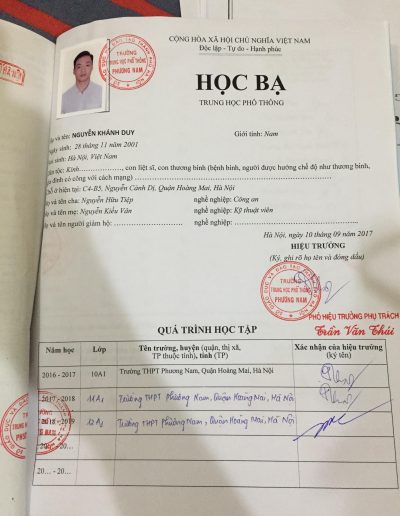 CỘNG HÒA XÃ HỘI CHỦ NGHĨA VIỆT NAM
Độc lập - Tự do - Hạnh phúc
HỌC BẠ
TRUNG HỌC PHỔ THÔNG
TRƯỜNG
TRUNG HỌC PHỔ THÔNG
PHƯƠNG NAM
và tên: NGUYỄN KHÁNH DUY Giới tính: Nam
sinh: 28 tháng 11 năm 2001
sinh: Hà Nội, Việt Nam
tộc: Kinh, con liệt sĩ, con thương binh (bệnh binh, người được hưởng chế độ như thương binh,
đình có công với cách mạng)
ở hiện tại: C4-B5, Nguyễn Cảnh Dị, Quận Hoàng Mai, Hà Nội
và tên cha: Nguyễn Hữu Tiệp nghề nghiệp: Công an
và tên mẹ: Nguyễn Kiều Vân nghề nghiệp: Kỹ thuật viên
và tên người giám hộ: nghề nghiệp:
Hà Nội, ngày 10 tháng 09 năm 2017
HIỆU TRƯỞNG
(Ký, ghi rõ họ tên và đóng dấu)
TRƯỜNG
TRUNG HỌC PHỔ THÔNG
PHƯƠNG NAM
PHÓ HIỆU TRƯỞNG PHỤ TRÁCH
Trần Văn Thái
QUÁ TRÌNH HỌC TẬP
Năm học Lớp Tên trường, huyện (quận, thị xã, TP thuộc tỉnh), tỉnh (TP) Xác nhận của hiệu trưởng (ký tên)
2016 - 2017 10A1 Trường THPT Phương Nam, Quận Hoàng Mai, Hà Nội
2017 - 2018 11A1 Trường THPT Phương Nam, Quận Hoàng Mai, Hà Nội
2018 - 2019 12A1 Trường THPT Phương Nam, Quận Hoàng Mai, Hà Nội
20... - 20...
20... - 20...